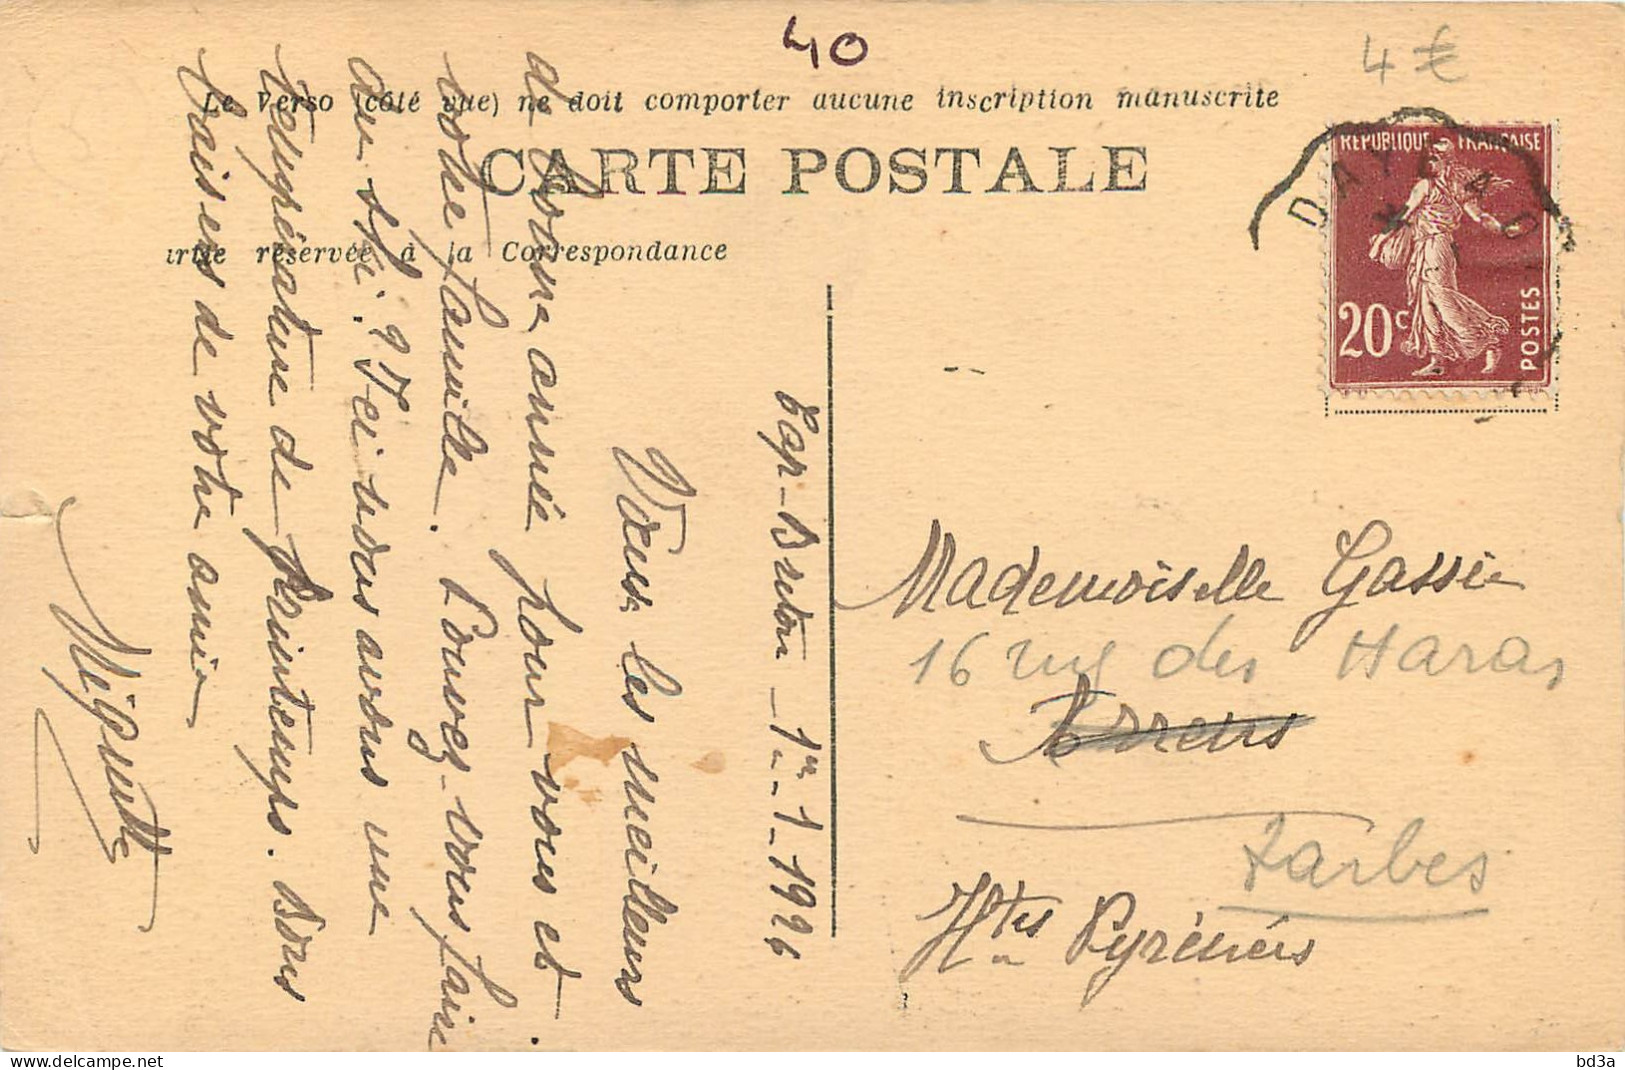 40
4€
Le Verso (côté vue) ne doit comporter aucune inscription manuscrite
CARTE POSTALE
rtie réservée à la Correspondance
REPUBLIQUE FRANÇAISE
20c
POSTES
DAX
Cap-Breton - 1er - 1 - 1926
Voeux les meilleurs
de bonne année pour vous et
votre famille. Pouvez-vous faire
du ski ? Ici nous avons une
température de printemps. Bons
baisers de votre amie
Mademoiselle Gassie
16 rue des Haras
Arrens
Tarbes
Htes Pyrénées
bd3a